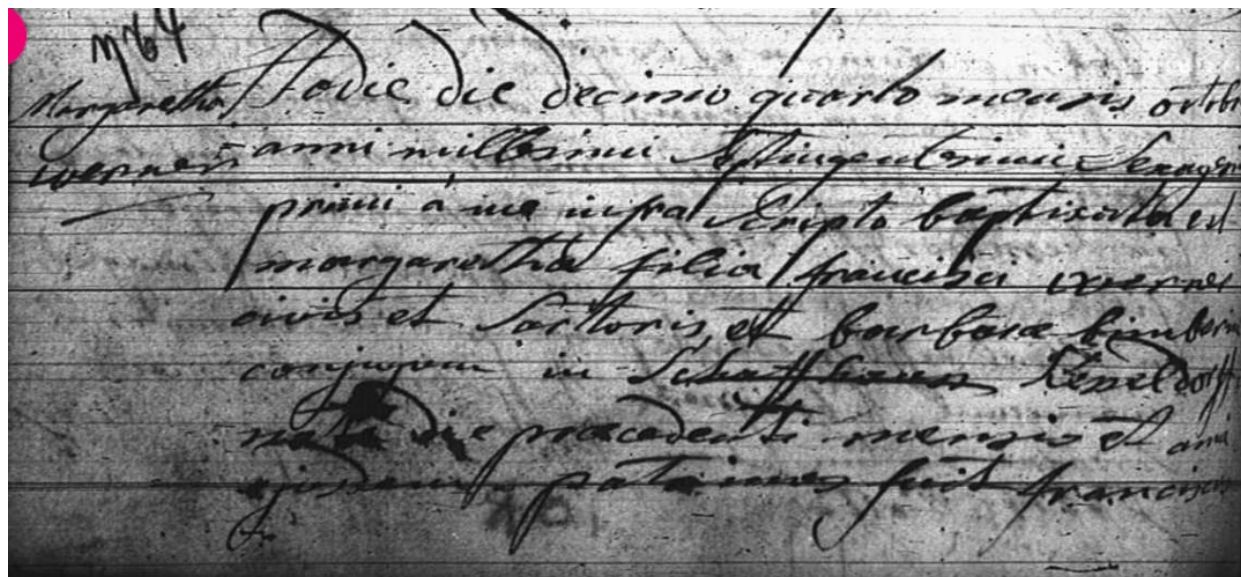 n 64
Margaretha
werner
Hodie die decimo quarto mensis octobr
anni millesimi septingentesimi sexagesi
primi a me infra scripto baptisata est
margaretha filia francisci werner
civis et sartoris et barbara
conjugum in Schaffhausen
nata die praecedenti mensis et anni
ejusdem patrinus fuit franciscus